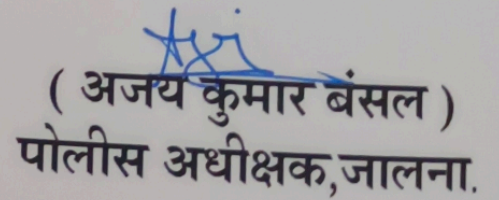 ( अजय कुमार बंसल )
पोलीस अधीक्षक,जालना.